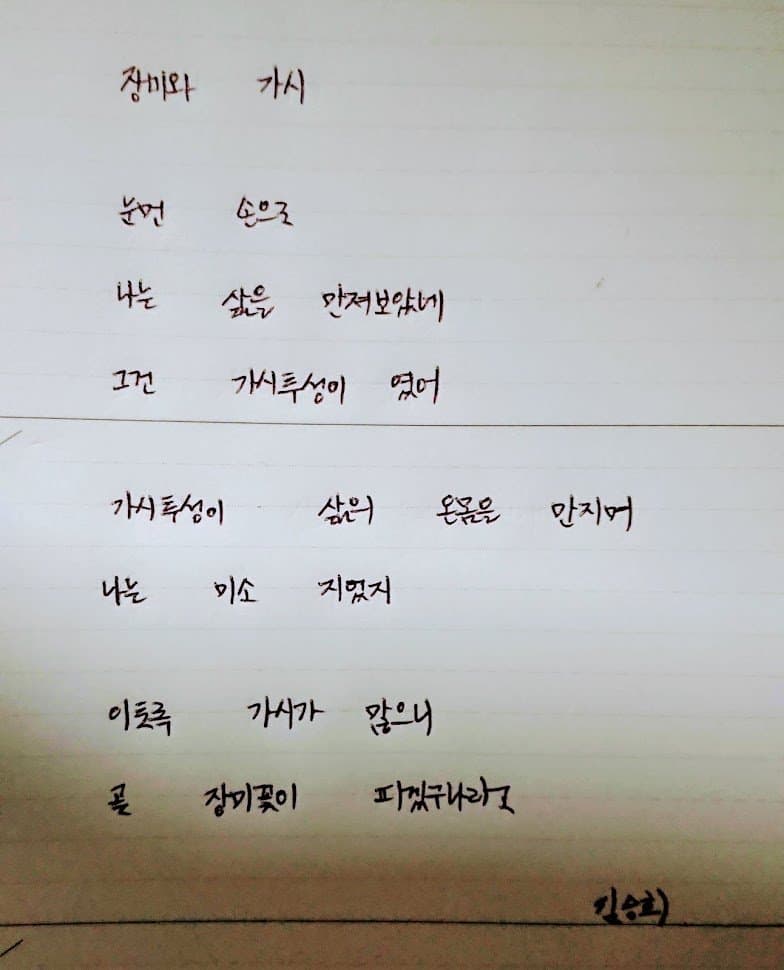 장미와 가시
눈먼 손으로
나는 삶을 만져보았네
그건 가시투성이 였어
가시투성이 삶의 온몸을 만지며
나는 미소 지었지
이토록 가시가 많으니
곧 장미꽃이 피겠구나라고
김승희